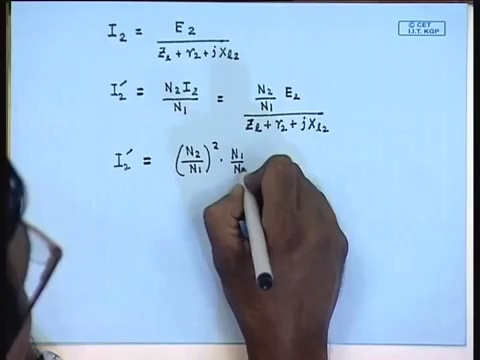 © CET
I.I.T. KGP
I₂ = E₂ / (Z₂ + r₂ + jX_{l2})
I₂′ = N₂I₂ / N₁ = (N₂/N₁) E₂ / (Z_l + r₂ + jX_{l2})
I₂′ = (N₂/N₁)² · N₁/N